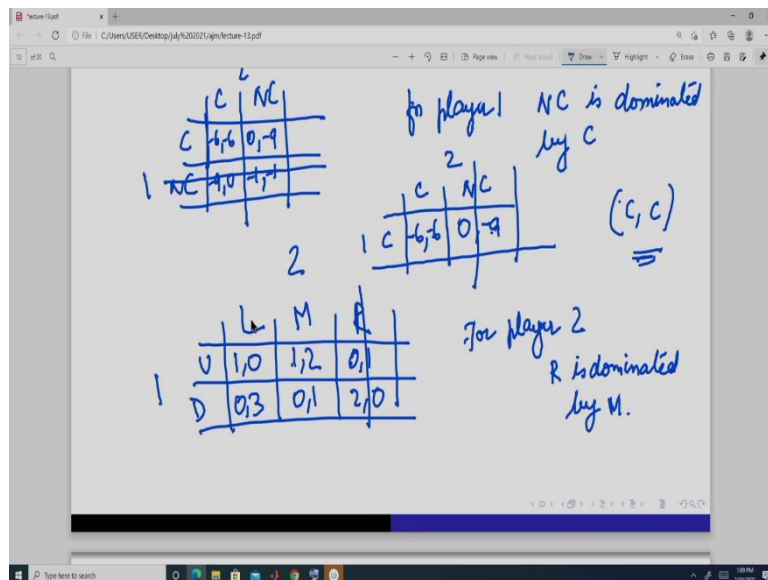 *lecture-13.pdf
File | C:/Users/USER/Desktop/july%202021/ajm/lecture-13.pdf
12 of 20
Page view | Read aloud | Draw | Highlight | Erase
2
C NC
C -6,-6 0,-9
1 NC -9,0 -1,-1
for player 1 NC is dominated
by C
2
C NC
1 C -6,-6 0,-9
(C, C)
2
L M R
U 1,0 1,2 0,1
1
D 0,3 0,1 2,0
For player 2
R is dominated
by M.
Type here to search
1:09 PM